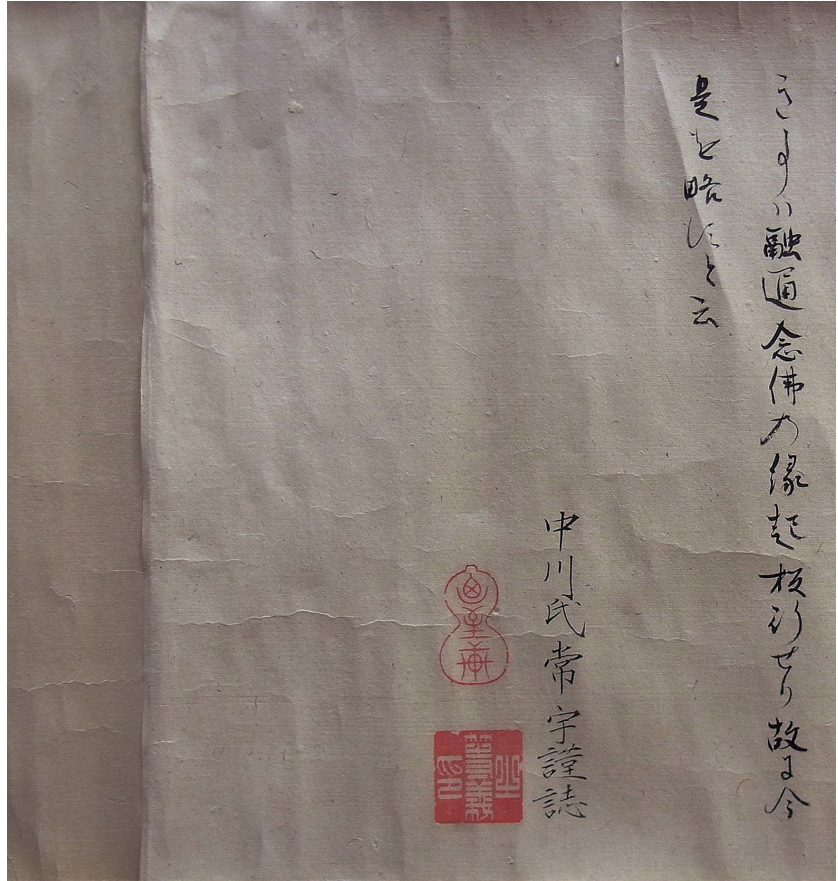 事ハ融通念佛乃縁起板行せり故に今
是を略すと云
中川氏常宇謹誌